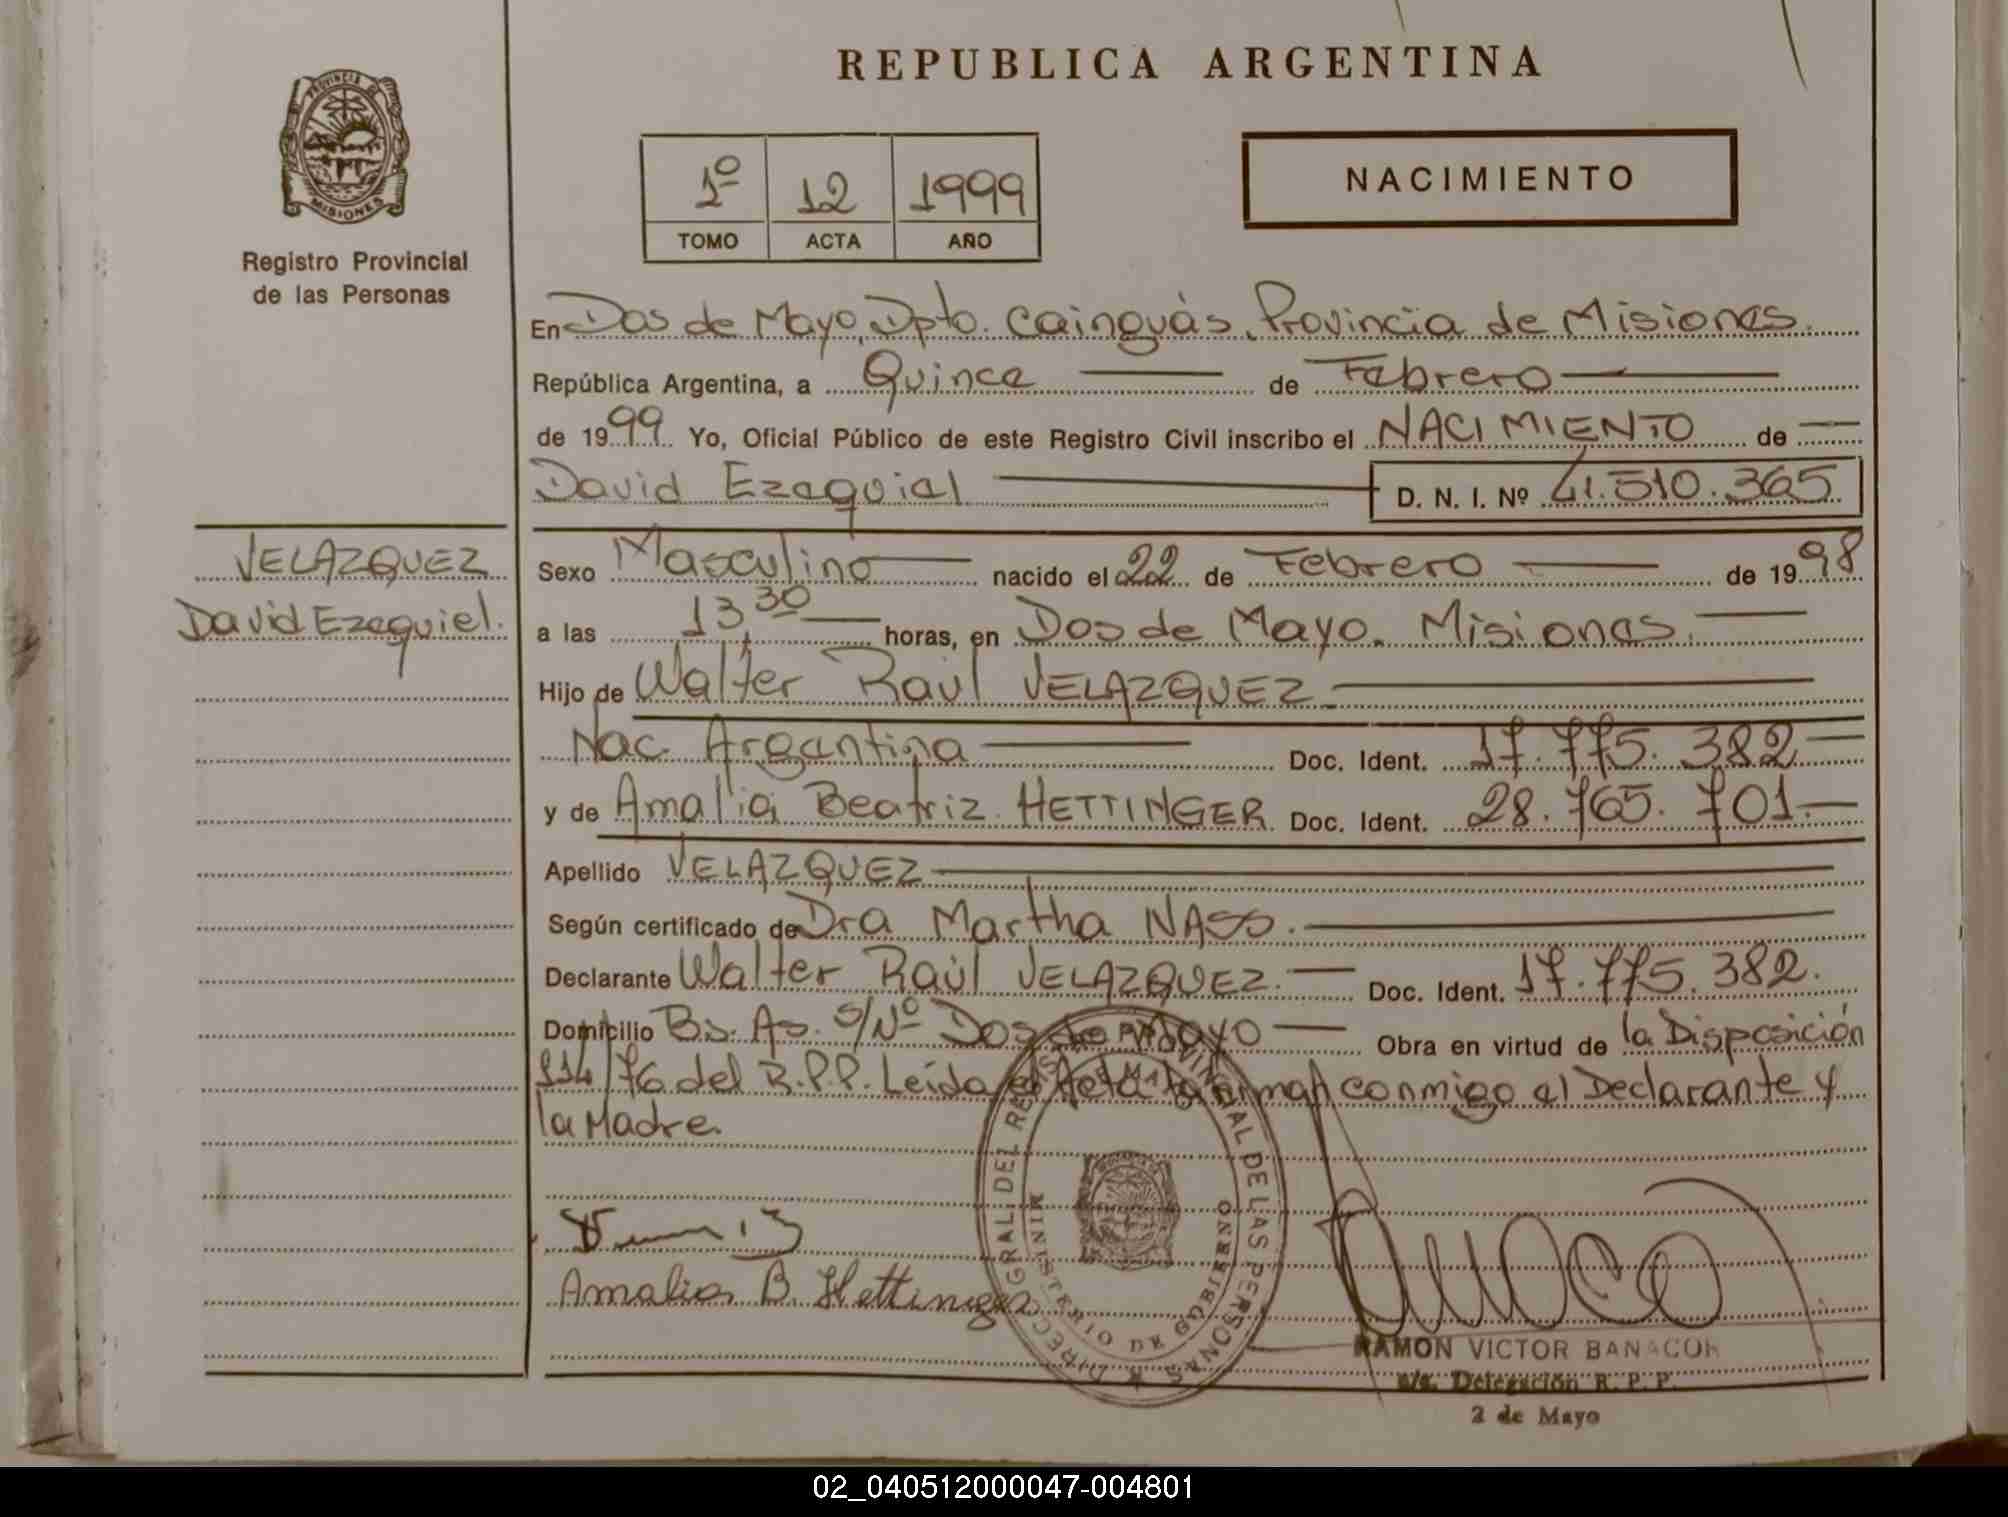 REPUBLICA ARGENTINA
PROVINCIA DE
MISIONES
Registro Provincial
de las Personas
1º 12 1999
TOMO ACTA AÑO
NACIMIENTO
En Dos de Mayo, Dpto. Cainguás, Provincia de Misiones.
República Argentina, a Quince de Febrero
de 1999 Yo, Oficial Público de este Registro Civil inscribo el NACIMIENTO de
David Ezequiel D. N. I. Nº 41.510.365
VELAZQUEZ
David Ezequiel.
Sexo Masculino nacido el 22 de Febrero de 1998
a las 13,30 horas, en Dos de Mayo. Misiones.
Hijo de Walter Raúl VELAZQUEZ
Nac. Argentina Doc. Ident. 17.775.382
y de Amalia Beatriz HETTINGER Doc. Ident. 28.765.701
Apellido VELAZQUEZ
Según certificado de Dra Martha NASS.
Declarante Walter Raúl VELAZQUEZ. Doc. Ident. 17.775.382.
Domicilio Bs. As. S/Nº Dos de Mayo Obra en virtud de la Disposición
114/76 del R.P.P. Leída el Acta la firman conmigo el Declarante y
la Madre.
Amalia B. Hettinger
DIRECC. GRAL. DEL REGISTRO PROVINCIAL DE LAS PERSONAS
MINISTERIO DE GOBIERNO
RAMON VICTOR BANACOR
Delegación R. P. P.
2 de Mayo
02_040512000047-004801